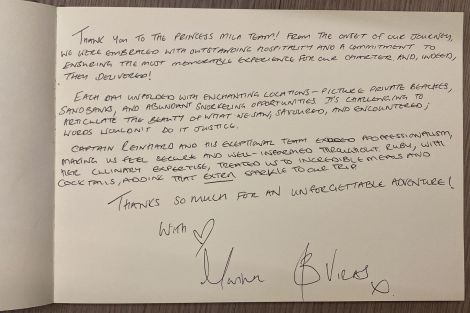 THANK YOU TO THE PRINCESS MILA TEAM! FROM THE ONSET OF OUR JOURNEY,
WE WERE EMBRACED WITH OUTSTANDING HOSPITALITY AND A COMMITMENT TO
ENSURING THE MOST MEMORABLE EXPERIENCE FOR OUR CHARTER AND, INDEED,
THEY DELIVERED!
EACH DAY UNFOLDED WITH ENCHANTING LOCATIONS - PICTURE PRIVATE BEACHES,
SANDBANKS, AND ABUNDANT SNORKELING OPPORTUNITIES. IT'S CHALLENGING TO
ARTICULATE THE BEAUTY OF WHAT WE SAW, SAVOURED, AND ENCOUNTERED;
WORDS WOULDN'T DO IT JUSTICE.
CAPTAIN REINHARD AND HIS EXCEPTIONAL TEAM EXUDED PROFESSIONALISM,
MAKING US FEEL SECURE AND WELL-INFORMED THROUGHOUT. RUBY, WITH
HER CULINARY EXPERTISE, TREATED US TO INCREDIBLE MEALS AND
COCKTAILS, ADDING THAT EXTRA SPARKLE TO OUR TRIP.
THANKS SO MUCH FOR AN UNFORGETTABLE ADVENTURE!
WITH ♡
X